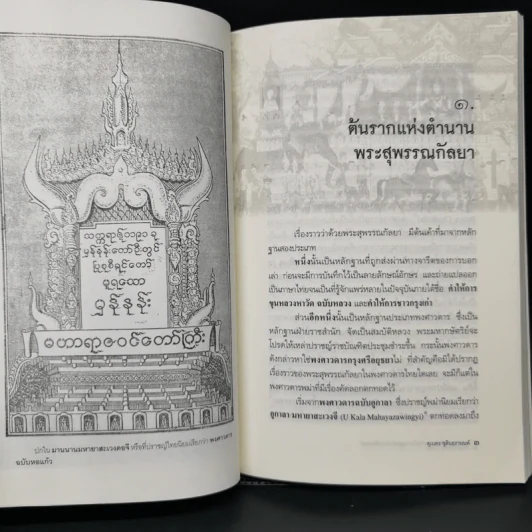 သက္ကရာဇ် ၁၁၉၁ ခု
မှန်နန်းတော်ဦးတွင်
ပြုစုစီရင်တော်
မူရသော
မှန်နန်း
မဟာရာဇဝင်တော်ကြီး
ปกใน มานนานมหายาสะเวงดอจี หรือที่ปราชญ์ไทยนิยมเรียกว่า พงศาวดาร
ฉบับหอแก้ว
๑.
ต้นรากแห่งตำนาน
พระสุพรรณกัลยา
เรื่องราวว่าด้วยพระสุพรรณกัลยา มีต้นเค้าที่มาจากหลัก
ฐานสองประเภท
หนึ่งนั้นเป็นหลักฐานที่ถูกส่งผ่านทางจารีตของการบอก
เล่า ก่อนจะมีการบันทึกไว้เป็นลายลักษณ์อักษร และถ่ายแปลออก
เป็นภาษาไทยจนเป็นที่รู้จักแพร่หลายในปัจจุบันภายใต้ชื่อ คำให้การ
ขุนหลวงหาวัด ฉบับหลวง และคำให้การชาวกรุงเก่า
ส่วนอีกหนึ่งนั้นเป็นหลักฐานประเภทพงศาวดาร ซึ่งเป็น
หลักฐานฝ่ายราชสำนัก จัดเป็นสมบัติหลวง พระมหากษัตริย์จะ
โปรดให้เหล่าปราชญ์ราชบัณฑิตชำระขึ้น กระนั้นพงศาวดาร
ดังกล่าวหาใช่พงศาวดารกรุงศรีอยุธยาไม่ ที่สำคัญคือมิได้ปรากฏ
เรื่องราวของพระสุพรรณกัลยาในพงศาวดารไทยใดเลย จะมีก็แต่ใน
พงศาวดารพม่าที่มีเรื่องคัดลอกตกทอดไว้
เริ่มจากพงศาวดารฉบับอูกาลา ซึ่งปราชญ์พม่านิยมเรียกว่า
อูกาลา มหายาสะเวงจี (U Kala Mahayazawingyi) ตกทอดลงมาถึง
สุเนตร ชุตินธรานนท์ ๓